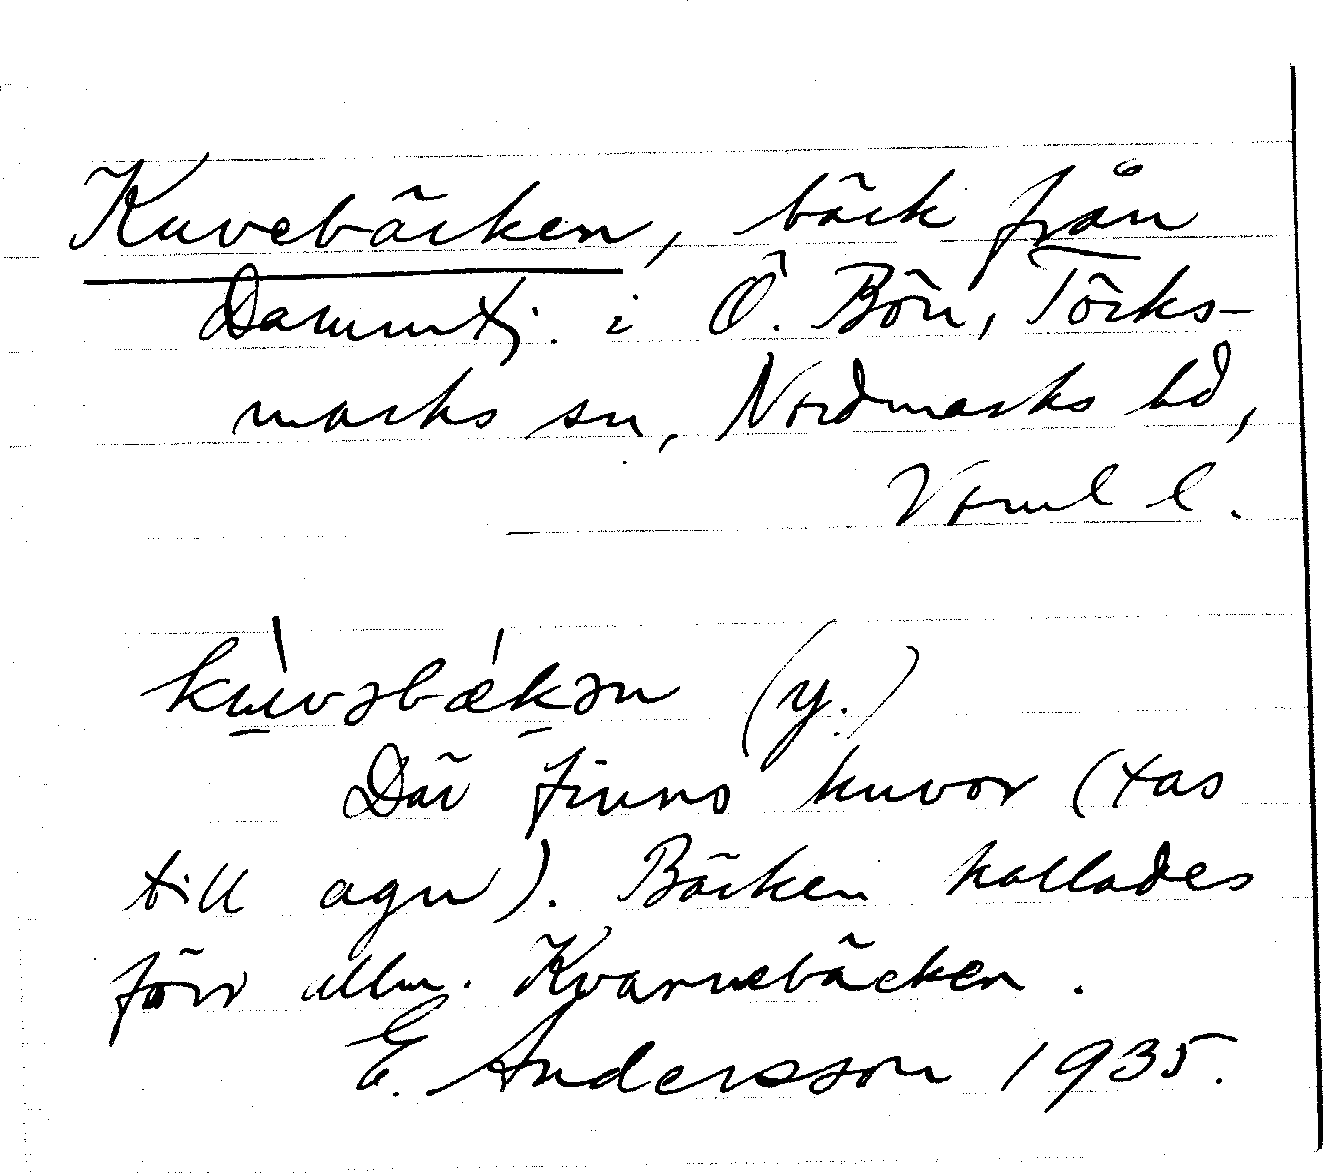 Kuvebäcken, bäck från
Dammtj. i Ö. Bön, Töcks-
marks sn, Nordmarks hd,
Vrml l.
kùvəbǽkən (y.)
Där finns kuvor (tas
till agn). Bäcken kallades
förr allm. Kvarnebäcken.
E. Andersson 1935.